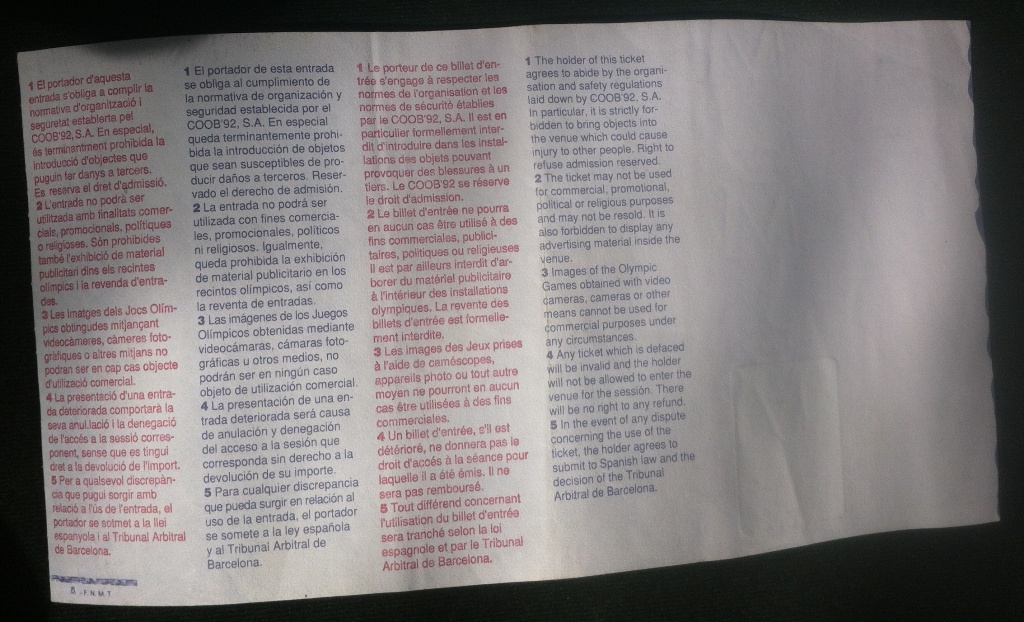 1 El portador d'aquesta
entrada s'obliga a complir la
normativa d'organització i
seguretat establerta pel
COOB'92, S.A. En especial,
és terminantment prohibida la
introducció d'objectes que
puguin fer danys a tercers.
Es reserva el dret d'admissió.
2 L'entrada no podrà ser
utilitzada amb finalitats comer-
cials, promocionals, polítiques
o religioses. Són prohibides
també l'exhibició de material
publicitari dins els recintes
olímpics i la revenda d'entra-
des.
3 Les imatges dels Jocs Olím-
pics obtingudes mitjançant
videocàmeres, càmeres foto-
gràfiques o altres mitjans no
podran ser en cap cas objecte
d'utilització comercial.
4 La presentació d'una entra-
da deteriorada comportarà la
seva anul.lació i la denegació
de l'accés a la sessió corres-
ponent, sense que es tingui
dret a la devolució de l'import.
5 Per a qualsevol discrepàn-
cia que pugui sorgir amb
relació a l'ús de l'entrada, el
portador se sotmet a la llei
espanyola i al Tribunal Arbitral
de Barcelona.
F.N.M.T
1 El portador de esta entrada
se obliga al cumplimiento de
la normativa de organización y
seguridad establecida por el
COOB'92, S.A. En especial
queda terminantemente prohi-
bida la introducción de objetos
que sean susceptibles de pro-
ducir daños a terceros. Reser-
vado el derecho de admisión.
2 La entrada no podrá ser
utilizada con fines comercia-
les, promocionales, políticos
ni religiosos. Igualmente,
queda prohibida la exhibición
de material publicitario en los
recintos olímpicos, así como
la reventa de entradas.
3 Las imágenes de los Juegos
Olímpicos obtenidas mediante
videocámaras, cámaras foto-
gráficas u otros medios, no
podrán ser en ningún caso
objeto de utilización comercial.
4 La presentación de una en-
trada deteriorada será causa
de anulación y denegación
del acceso a la sesión que
corresponda sin derecho a la
devolución de su importe.
5 Para cualquier discrepancia
que pueda surgir en relación al
uso de la entrada, el portador
se somete a la ley española
y al Tribunal Arbitral de
Barcelona.
1 Le porteur de ce billet d'en-
trée s'engage à respecter les
normes de l'organisation et les
normes de sécurité établies
par le COOB'92, S.A. Il est en
particulier formellement inter-
dit d'introduire dans les instal-
lations des objets pouvant
provoquer des blessures à un
tiers. Le COOB'92 se réserve
le droit d'admission.
2 Le billet d'entrée ne pourra
en aucun cas être utilisé à des
fins commerciales, publici-
taires, politiques ou religieuses
Il est par ailleurs interdit d'ar-
borer du matériel publicitaire
à l'intérieur des installations
olympiques. La revente des
billets d'entrée est formelle-
ment interdite.
3 Les images des Jeux prises
à l'aide de caméscopes,
appareils photo ou tout autre
moyen ne pourront en aucun
cas être utilisées à des fins
commerciales.
4 Un billet d'entrée, s'il est
détérioré, ne donnera pas le
droit d'accés à la séance pour
laquelle il a été émis. Il ne
sera pas remboursé.
5 Tout différend concernant
l'utilisation du billet d'entrée
sera tranché selon la loi
espagnole et par le Tribunal
Arbitral de Barcelona.
1 The holder of this ticket
agrees to abide by the organi-
sation and safety regulations
laid down by COOB'92, S.A.
In particular, it is strictly for-
bidden to bring objects into
the venue which could cause
injury to other people. Right to
refuse admission reserved.
2 The ticket may not be used
for commercial, promotional,
political or religious purposes
and may not be resold. It is
also forbidden to display any
advertising material inside the
venue.
3 Images of the Olympic
Games obtained with video
cameras, cameras or other
means cannot be used for
commercial purposes under
any circumstances.
4 Any ticket which is defaced
will be invalid and the holder
will not be allowed to enter the
venue for the sessión. There
will be no right to any refund.
5 In the event of any dispute
concerning the use of the
ticket, the holder agrees to
submit to Spanish law and the
decision of the Tribunal
Arbitral de Barcelona.